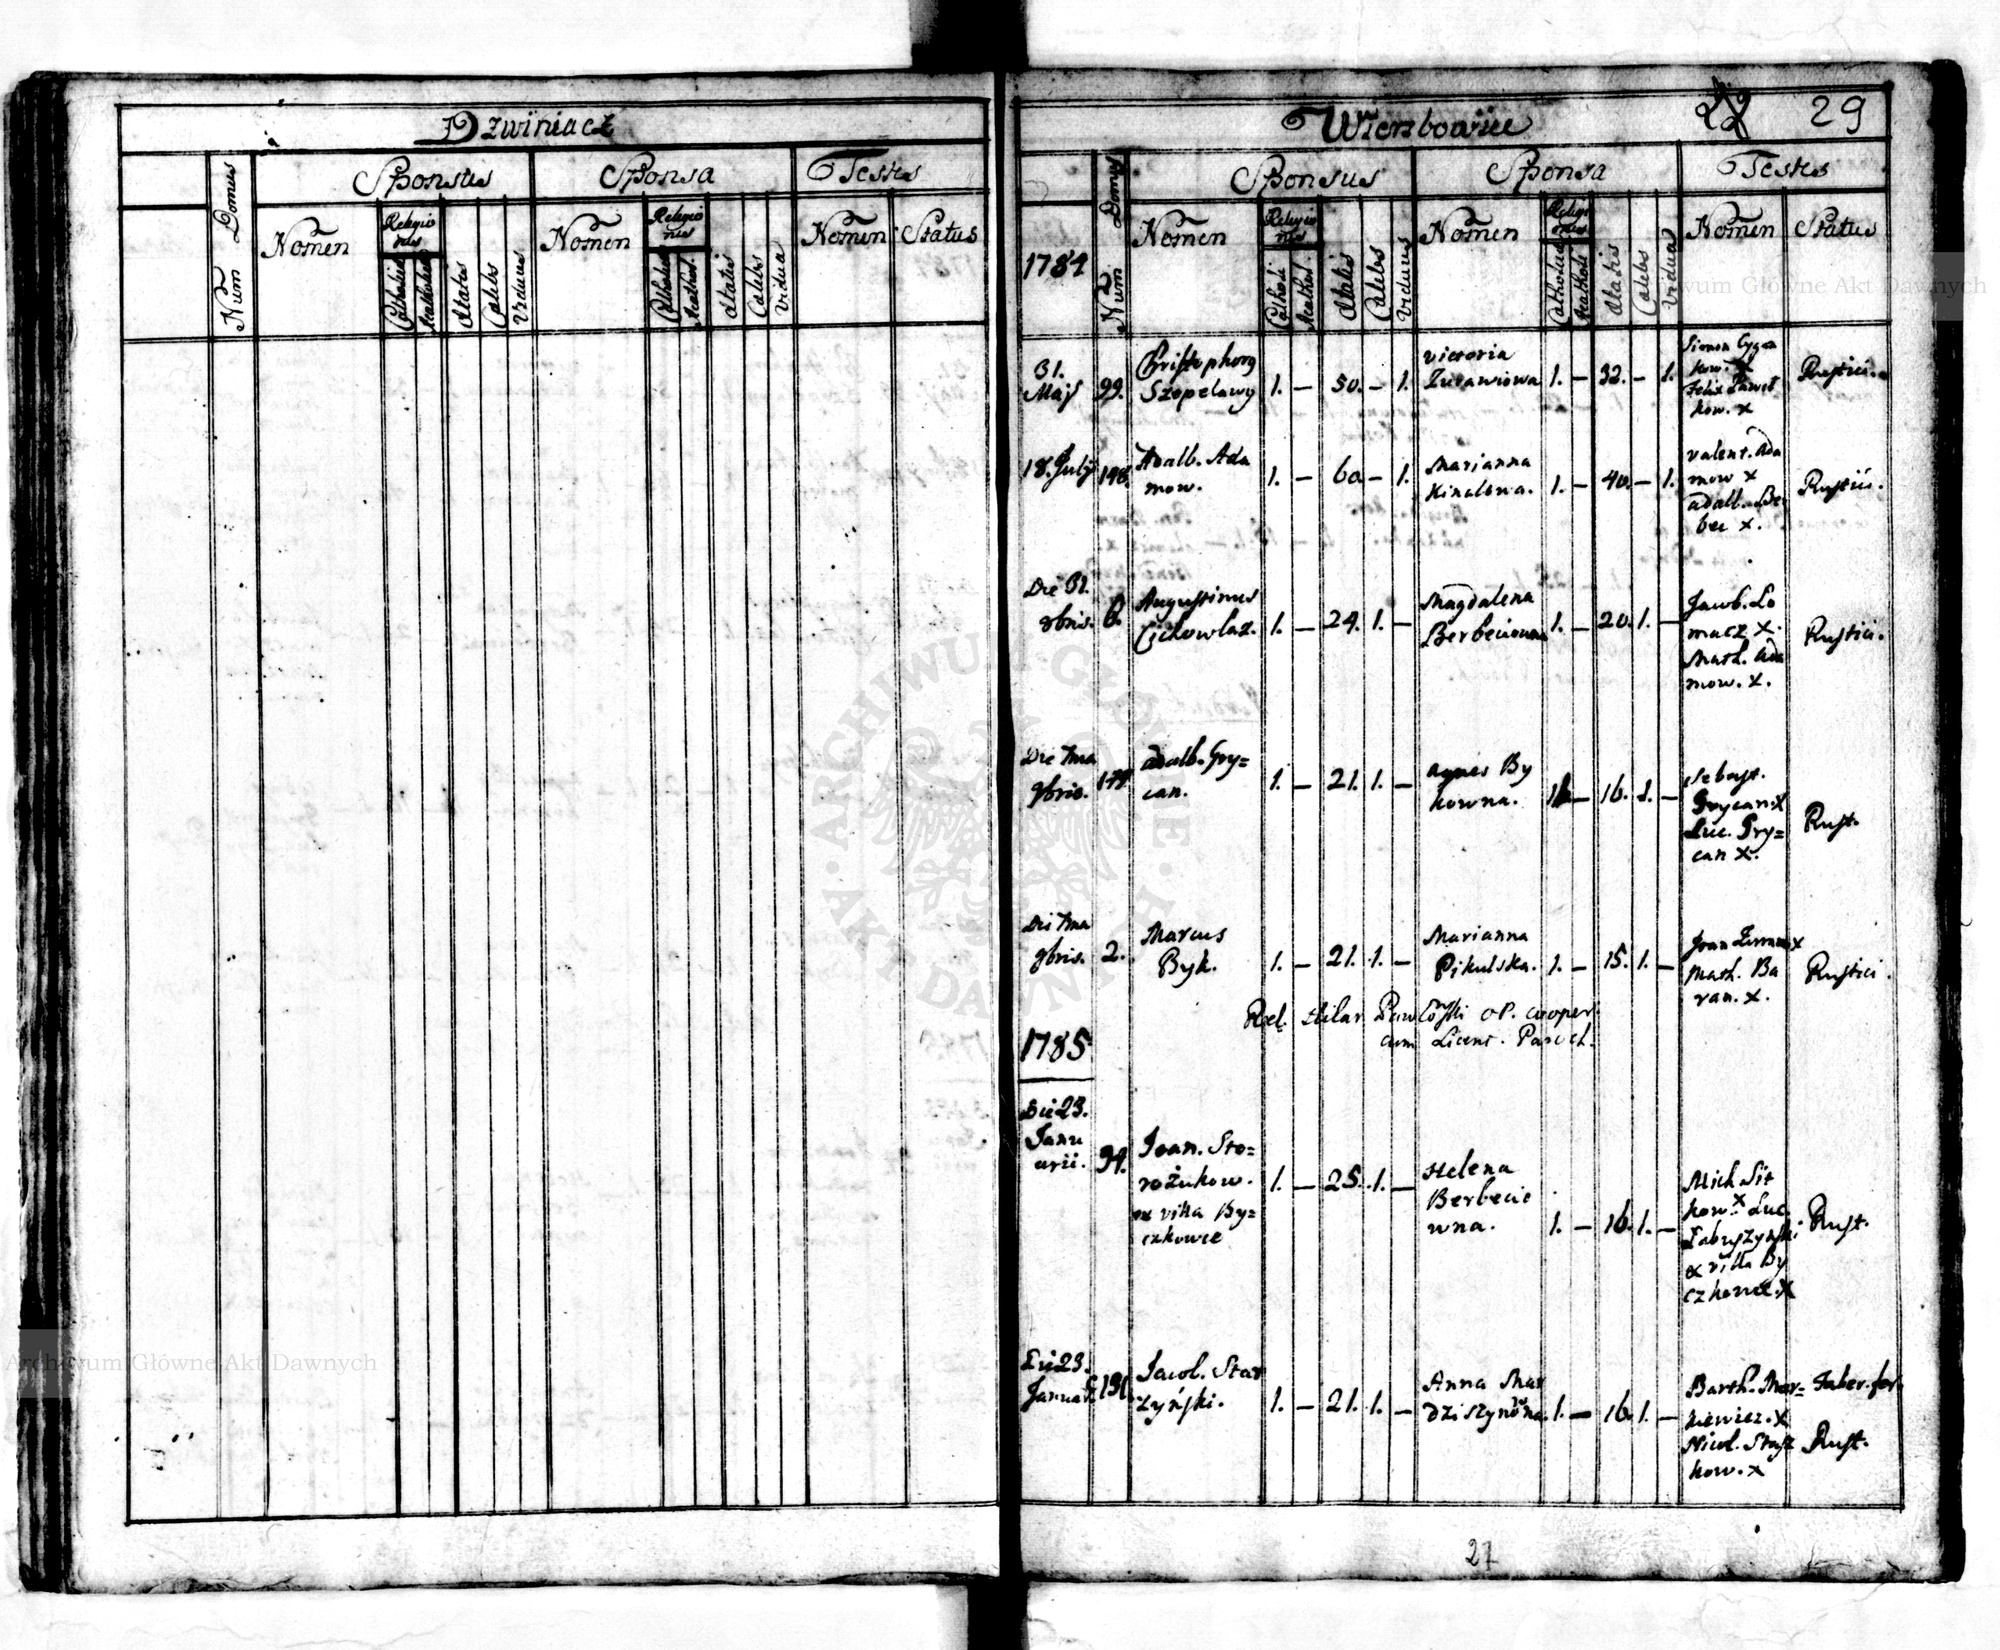 Dzwiniacz
Num Domus
Sponsus
Sponsa
Testes
Nomen
Religionis
Catholica
Acatholica
Ætatis
Cælebs
Viduus
Nomen
Religionis
Catholica
Acathol.
Ætatis
Cælebs
Vidua
Nomen
Status
Wierzbowice
29
1784
Num Domus
Sponsus
Sponsa
Testes
Nomen
Religionis
Catholi
Acathol.
Ætatis
Cælebs
Viduus
Nomen
Religionis
Catholica
Acatholi
Ætatis
Cælebs
Vidua
Nomen
Status
31. Maji 99. Christophorg Szopelawy 1. – 50. – 1. Victoria Zurawiowa 1. – 32. – 1. Simon Cygan
kow. x
Felix Pawel
kow. x
Rustici.
18. July 148. Adalb. Ada
mow. 1. – 60 – 1. Marianna
Kinalowa. 1. – 40. – 1. Valent. Ada
mow x
Adalb. Ber
bec x.
Rustici.
Die 31.
8bris. 6. Augustinus
Cichowlaz. 1. – 24. 1. – Magdalena
Berbeciowna 1. – 20. 1. – Jacob. Lo
macz x.
Math. Ada
mow. x.
Rustici.
Die 7ma
9bris. 177. Adalb. Gry=
can. 1. – 21. 1. – Agnes By
kowna. 1. – 16. 1. – Sebast.
Grycan. x
Luc. Gry=
can x.
Rust.
Die 7ma
9bris. 2. Marcus
Byk. 1. – 21. 1. – Marianna
Pikulska. 1. – 15. 1. – Joan x
Math. Ba
ran. x.
Rustici.
Rel. Hilar. Pawlowski OP. cooper.
cum Licent. Paroch.
1785
Die 23.
Janu
arii. 94. Joan. Sto=
rożukow.
ex villa By=
czkowce 1. – 25. 1. – Helena
Berbecio
wna. 1. – 16. 1. – Mich. Sit
kow. x Luc.
Zabryszynski
ex villa By
czkowce. x
Rust.
Die 23.
Januar. 131. Jacob. Star
zyński. 1. – 21. 1. – Anna Mar
dziszynowna. 1. – 16. 1. – Barth. Mar=
kiewicz. x
Nicol. Stasz
kow. x
Faber. fer.
Rust.
27
Archiwum Główne Akt Dawnych
Archiwum Główne Akt Dawnych
ARCHIWUM GŁÓWNE · AKT DAWNYCH ·